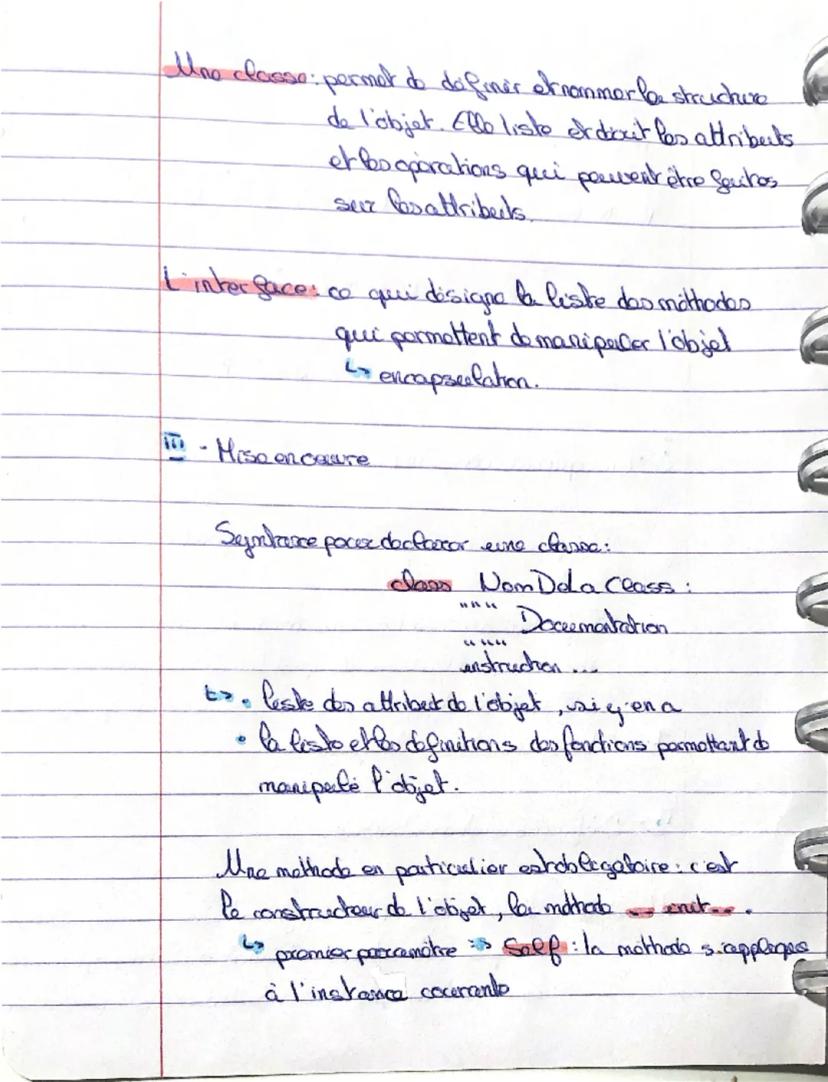 Une classe : permet de définir et nommer la structure
de l'objet. Elle liste et décrit les attributs
et les opérations qui peuvent être faites
sur les attributs.
L'interface : ce qui désigne la liste des méthodes
qui permettent de manipuler l'objet
↳ encapsulation.
III - Mise en œuvre
Syntaxe pour déclarer une classe :
class NomDeLaClass :
""""
Documentation
""""
instruction ...
↳ • liste des attribut de l'objet, si y en a
• la liste et les définitions des fonctions permettant de
manipulé l'objet.
Une méthode en particulier est obligatoire : c'est
le constructeur de l'objet, la méthode __init__.
↳ premier paramètre => Self : la méthode s'appliques
à l'instance courante